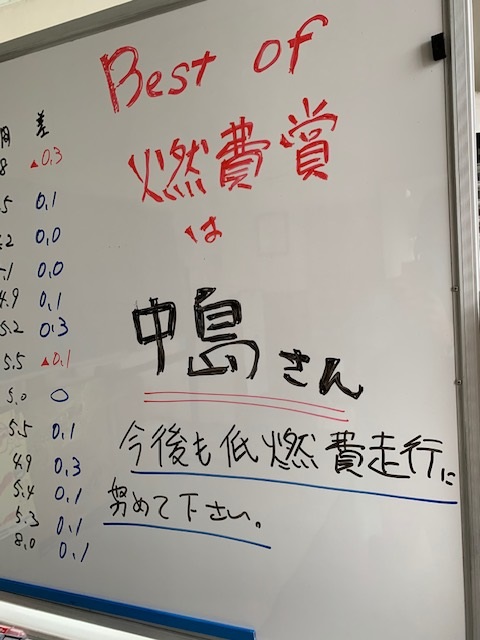 Best of
燃費賞
は
中島さん
今後も低燃費走行に
努めて下さい。
差
8 ▲0.3
.5 0.1
.2 0.0
.1 0.0
4.9 0.1
5.2 0.3
5.5 ▲0.1
5.0 0
5.5 0.1
4.9 0.3
5.4 0.1
5.3 0.1
8.0 0.1